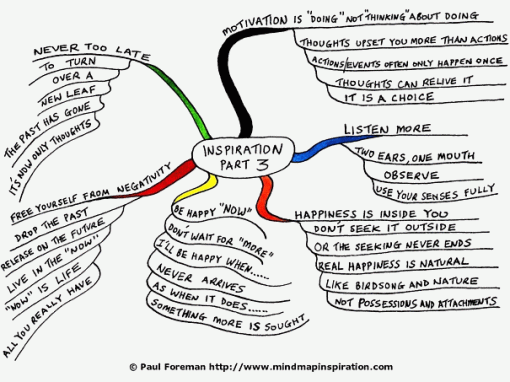 INSPIRATION
PART 3
MOTIVATION IS "DOING" NOT "THINKING" ABOUT DOING
THOUGHTS UPSET YOU MORE THAN ACTIONS
ACTIONS/EVENTS OFTEN ONLY HAPPEN ONCE
THOUGHTS CAN RELIVE IT
IT IS A CHOICE
LISTEN MORE
TWO EARS, ONE MOUTH
OBSERVE
USE YOUR SENSES FULLY
HAPPINESS IS INSIDE YOU
DON'T SEEK IT OUTSIDE
OR THE SEEKING NEVER ENDS
REAL HAPPINESS IS NATURAL
LIKE BIRDSONG AND NATURE
NOT POSSESSIONS AND ATTACHMENTS
BE HAPPY "NOW"
DON'T WAIT FOR "MORE"
I'LL BE HAPPY WHEN......
NEVER ARRIVES
AS WHEN IT DOES......
SOMETHING MORE IS SOUGHT
FREE YOURSELF FROM NEGATIVITY
DROP THE PAST
RELEASE ON THE FUTURE
LIVE IN THE "NOW"
"NOW" IS LIFE
ALL YOU REALLY HAVE
NEVER TOO LATE
TO TURN
OVER A
NEW LEAF
THE PAST HAS GONE
IT'S NOW ONLY THOUGHTS
© Paul Foreman http://www.mindmapinspiration.com